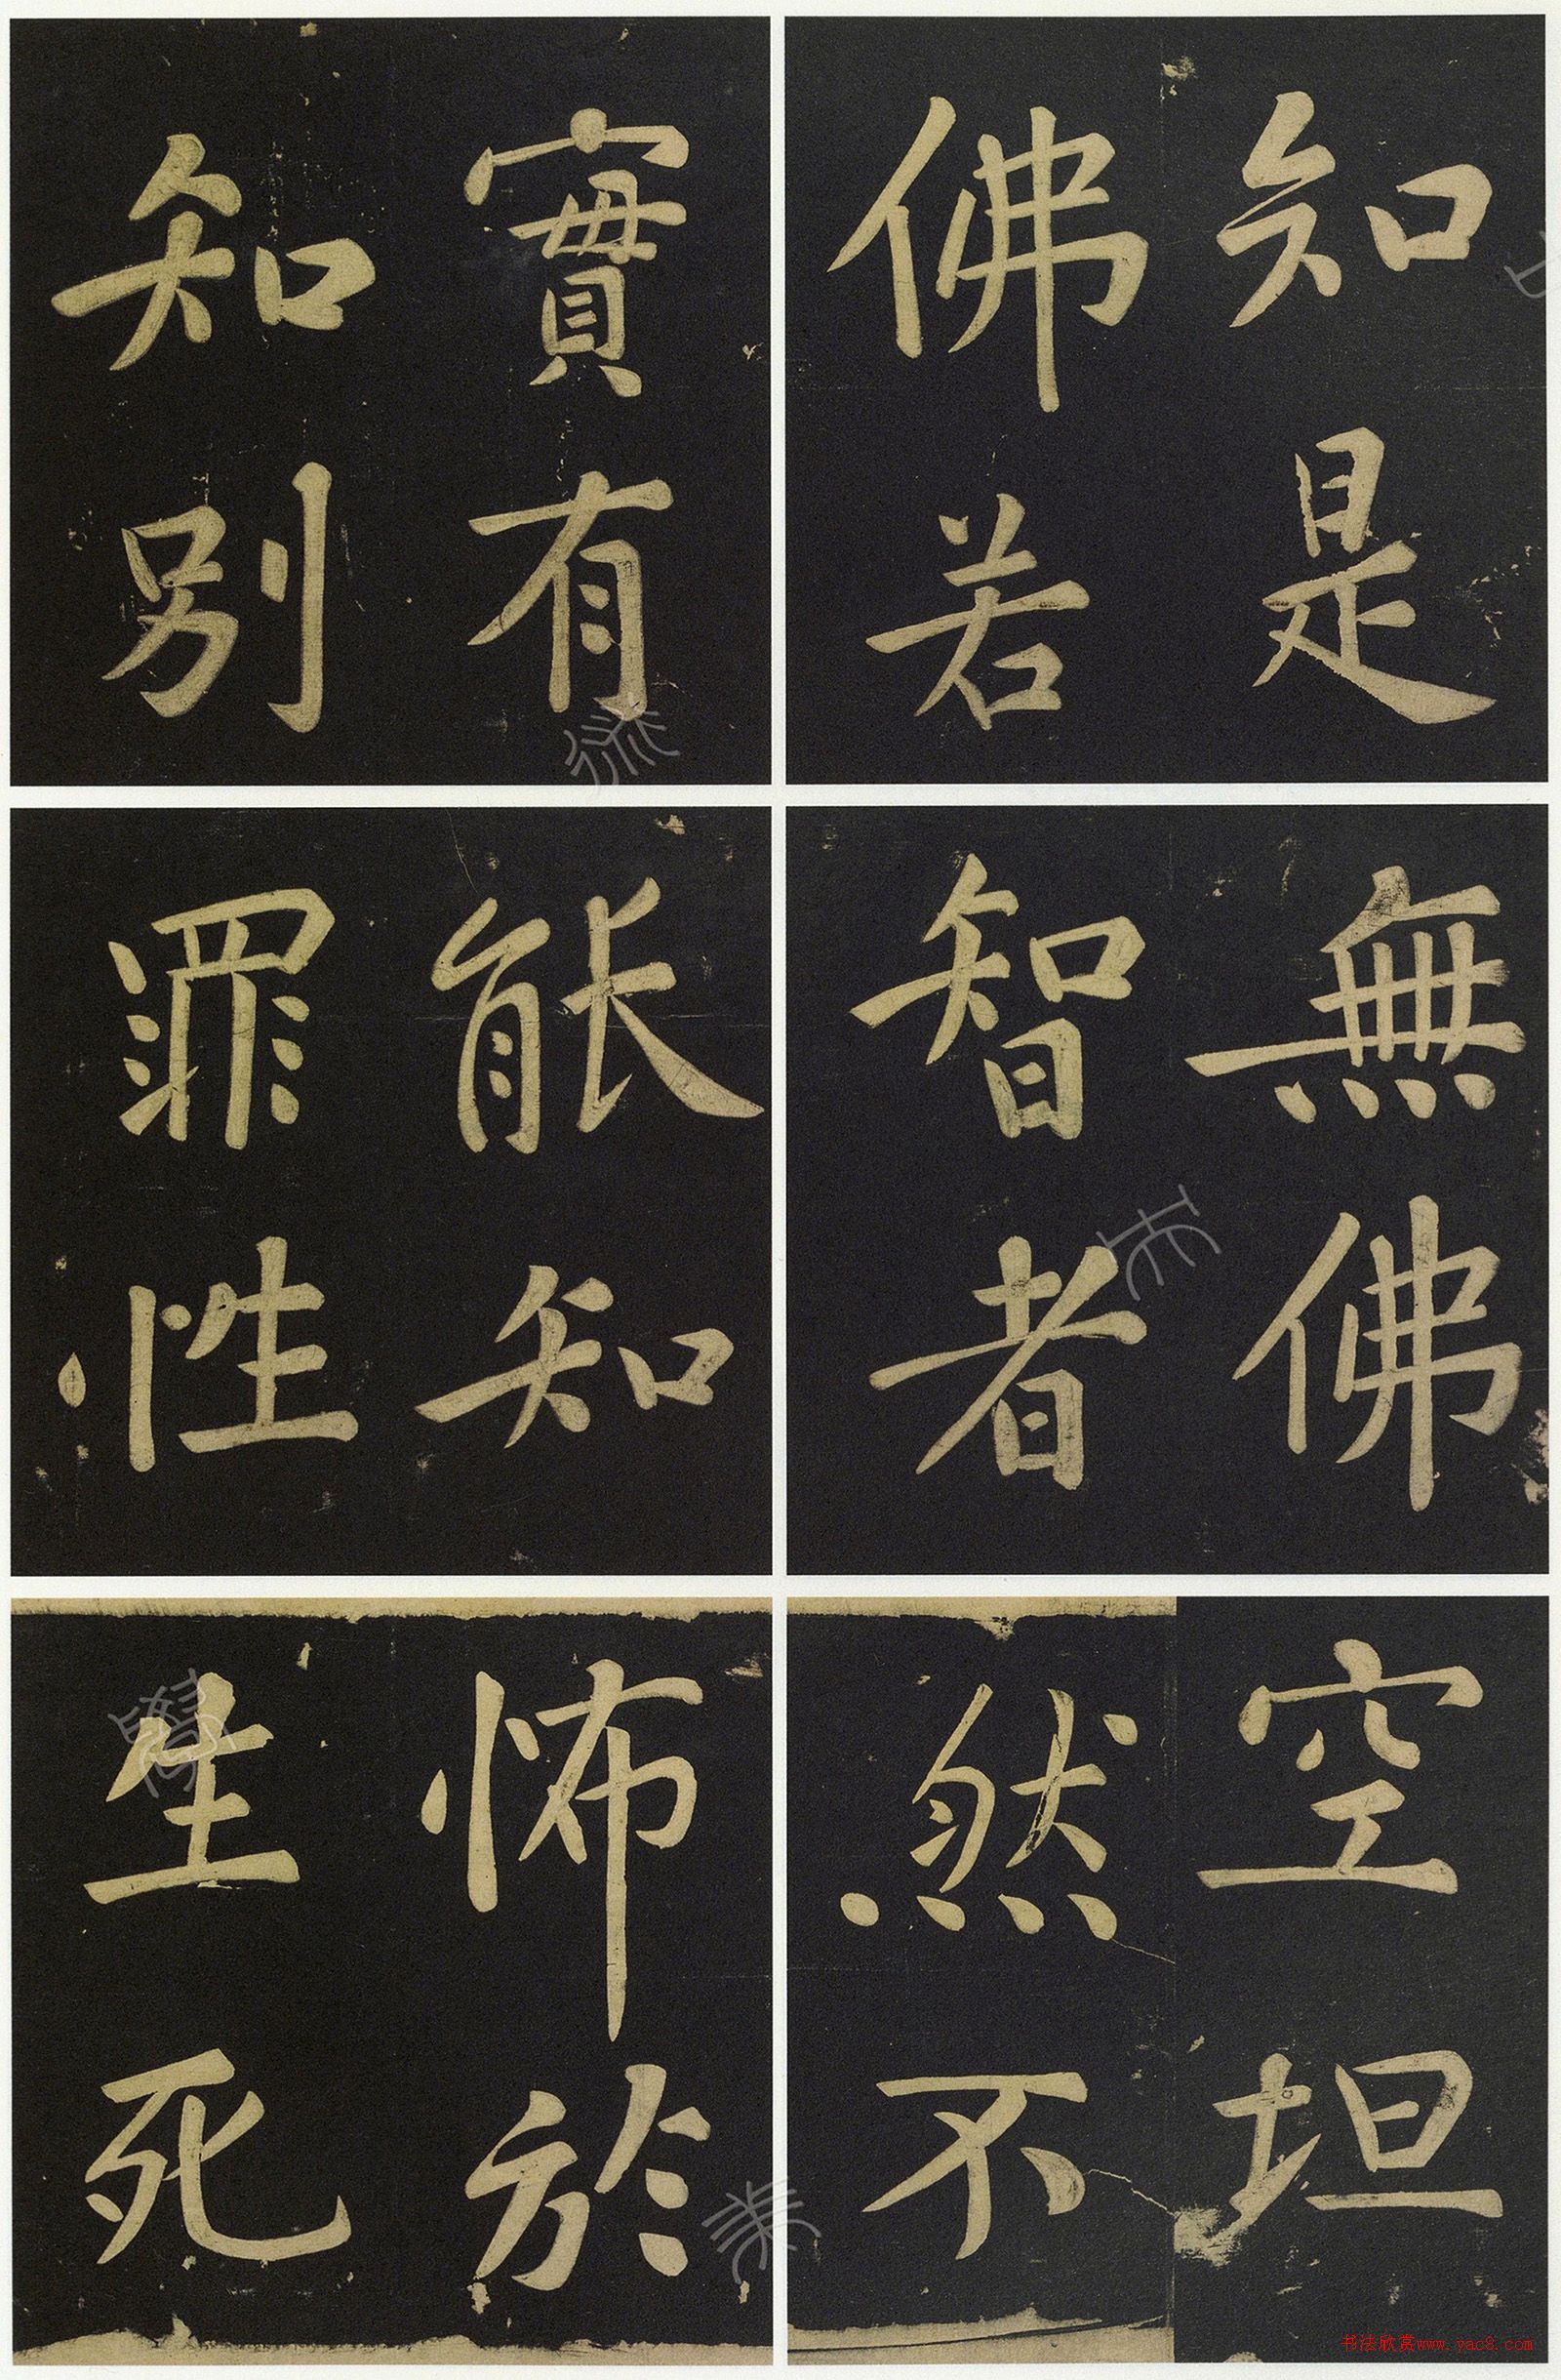 知是
佛若
實有
知別
無佛
智者
能知
罪性
空坦
然不
怖於
生死
书法欣赏www.yac8.com